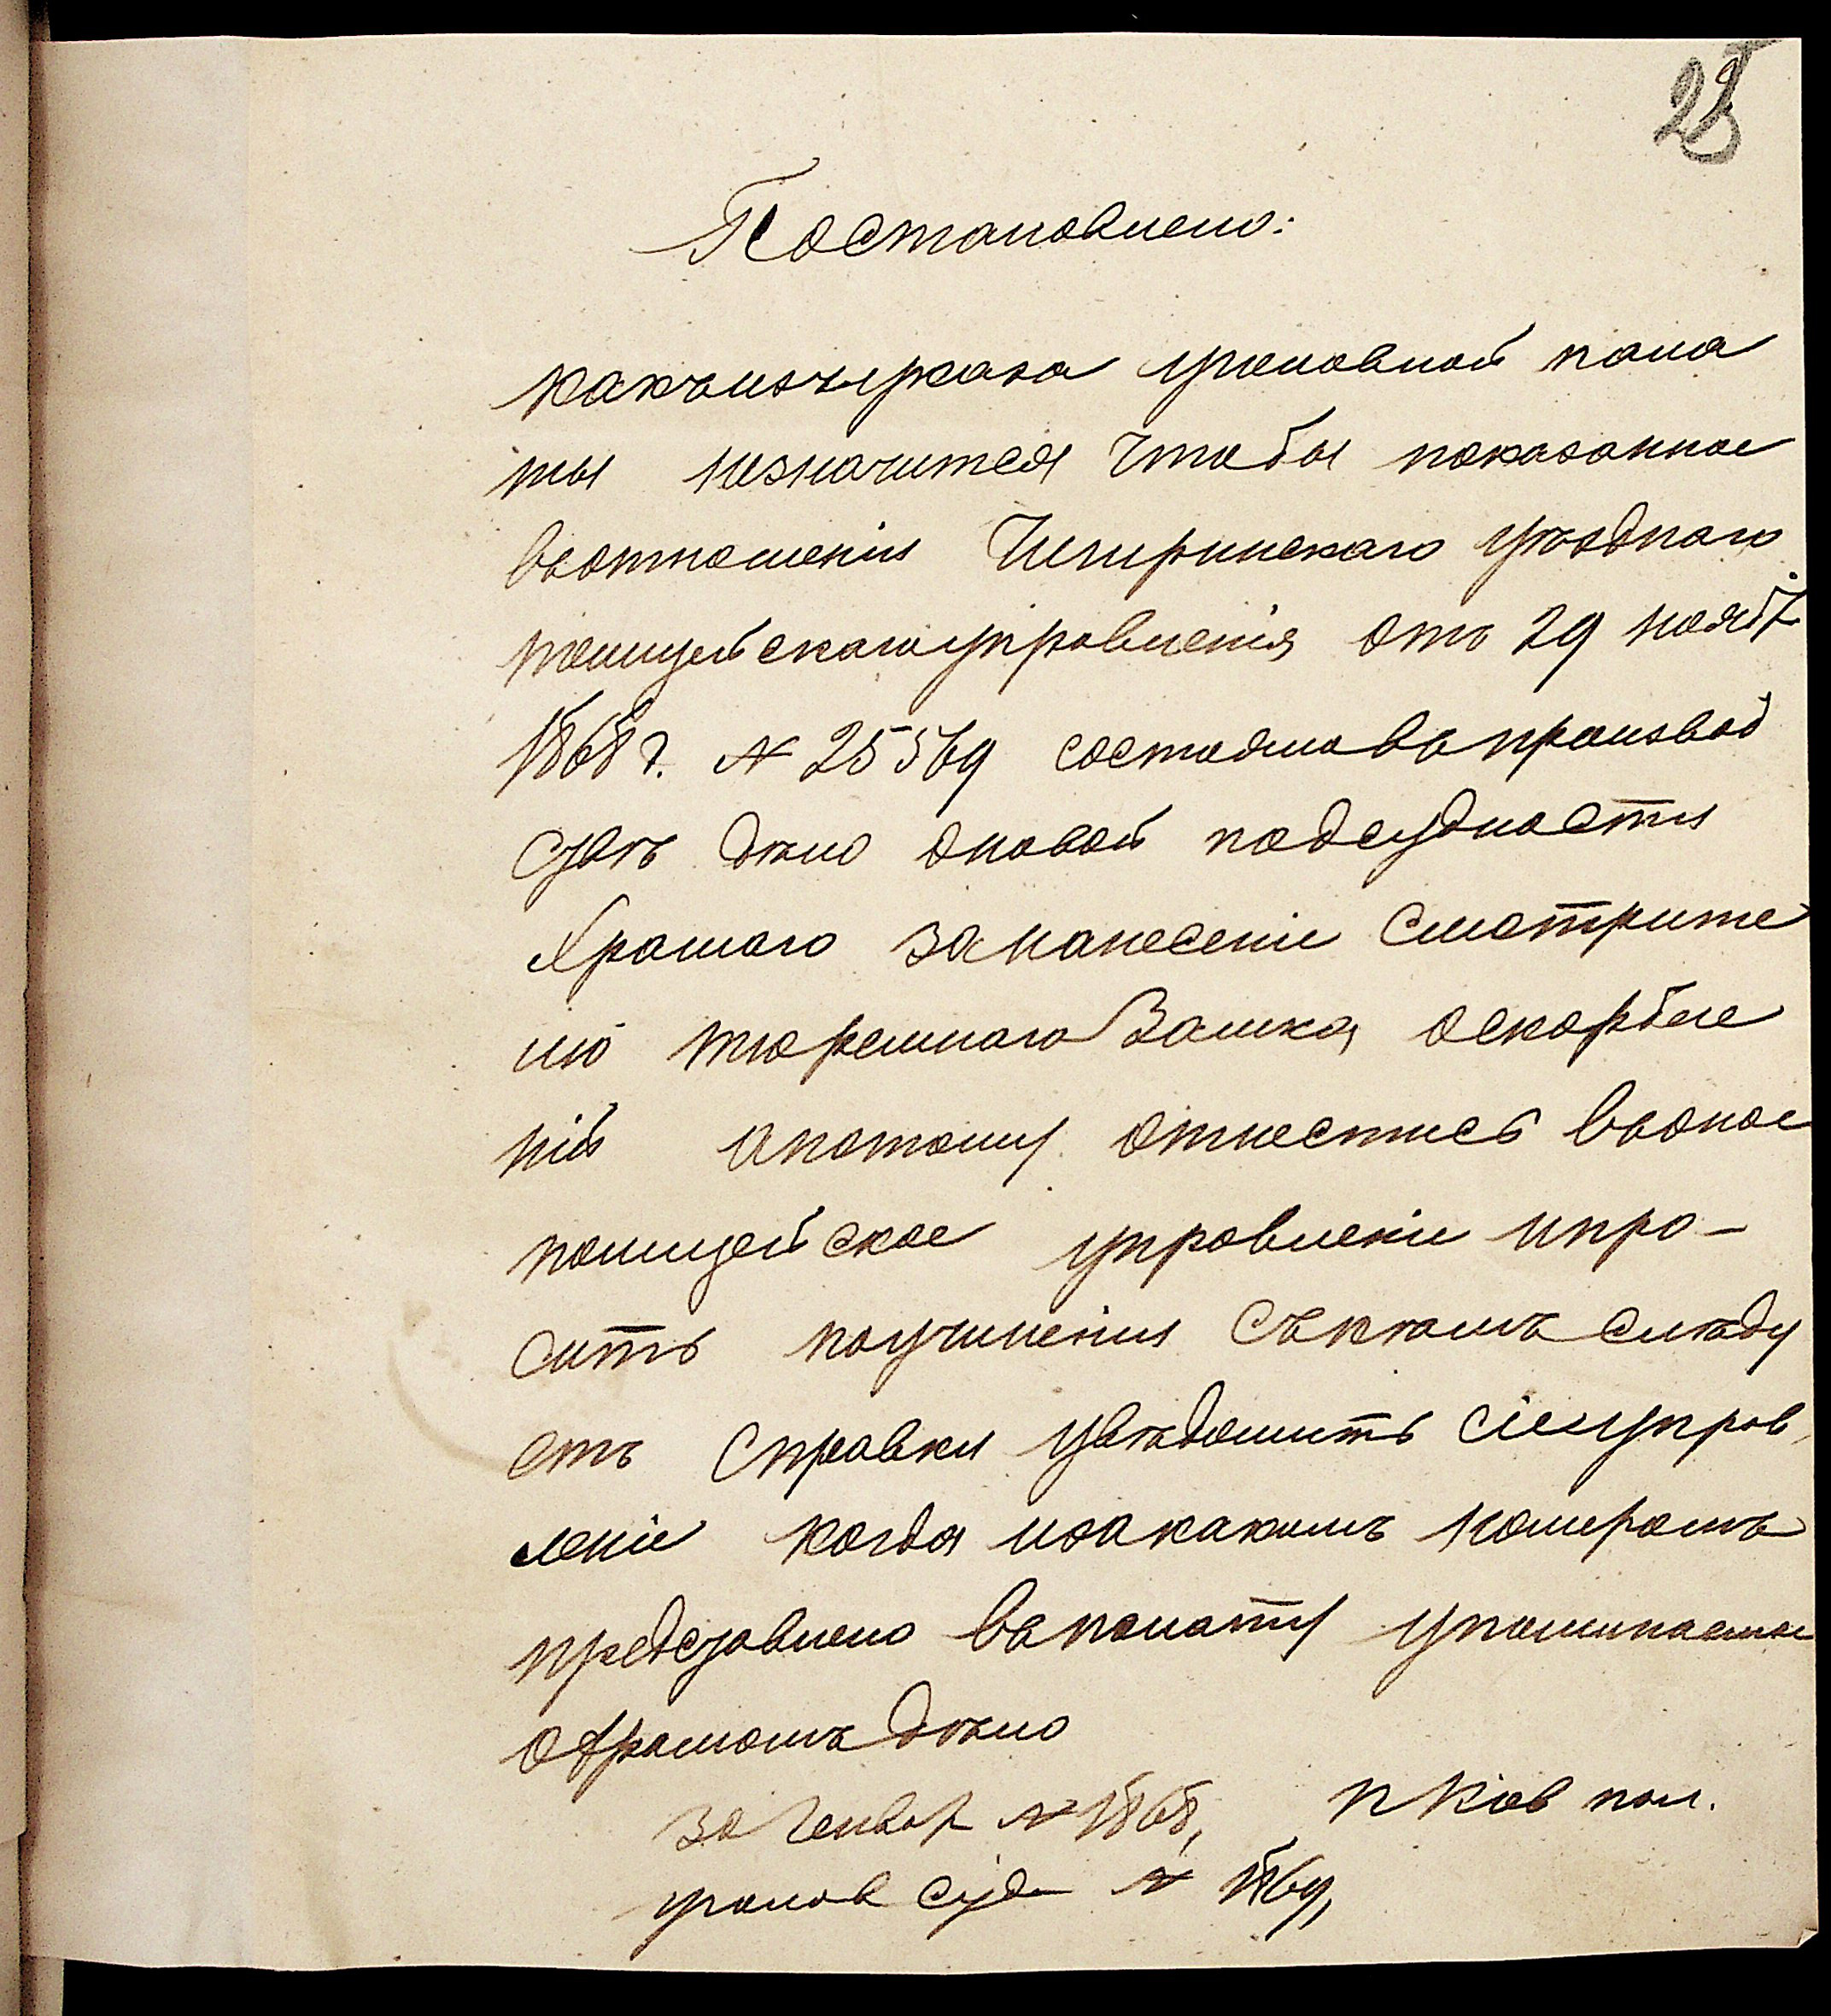 25
Постановлено:
какъизъуказа уголовной пала
ты незначится чтобы показанное
вьотношеніи Чигиринскаго уѣзднаго
полицейскагоуправленія отъ 29 нояб
1868 г. № 25569 состоялова производ
ствѣ дѣло оновой подсудности
Храмаго зананесеніе смотрите
лю тюремнаго Замка оскорбле
ній апотому отнестись воное
полицейское управленіе ипро-
сить поучиненіи съкѣмъ слѣду
етъ справки увѣдомить сіеуправ
леніе когда изакакимъ номеромъ
представлено въпалату упоминаемое
о Храмомъ дѣло
за Генвар № 1868, п Кіев пол.
уголов суда № 1869,